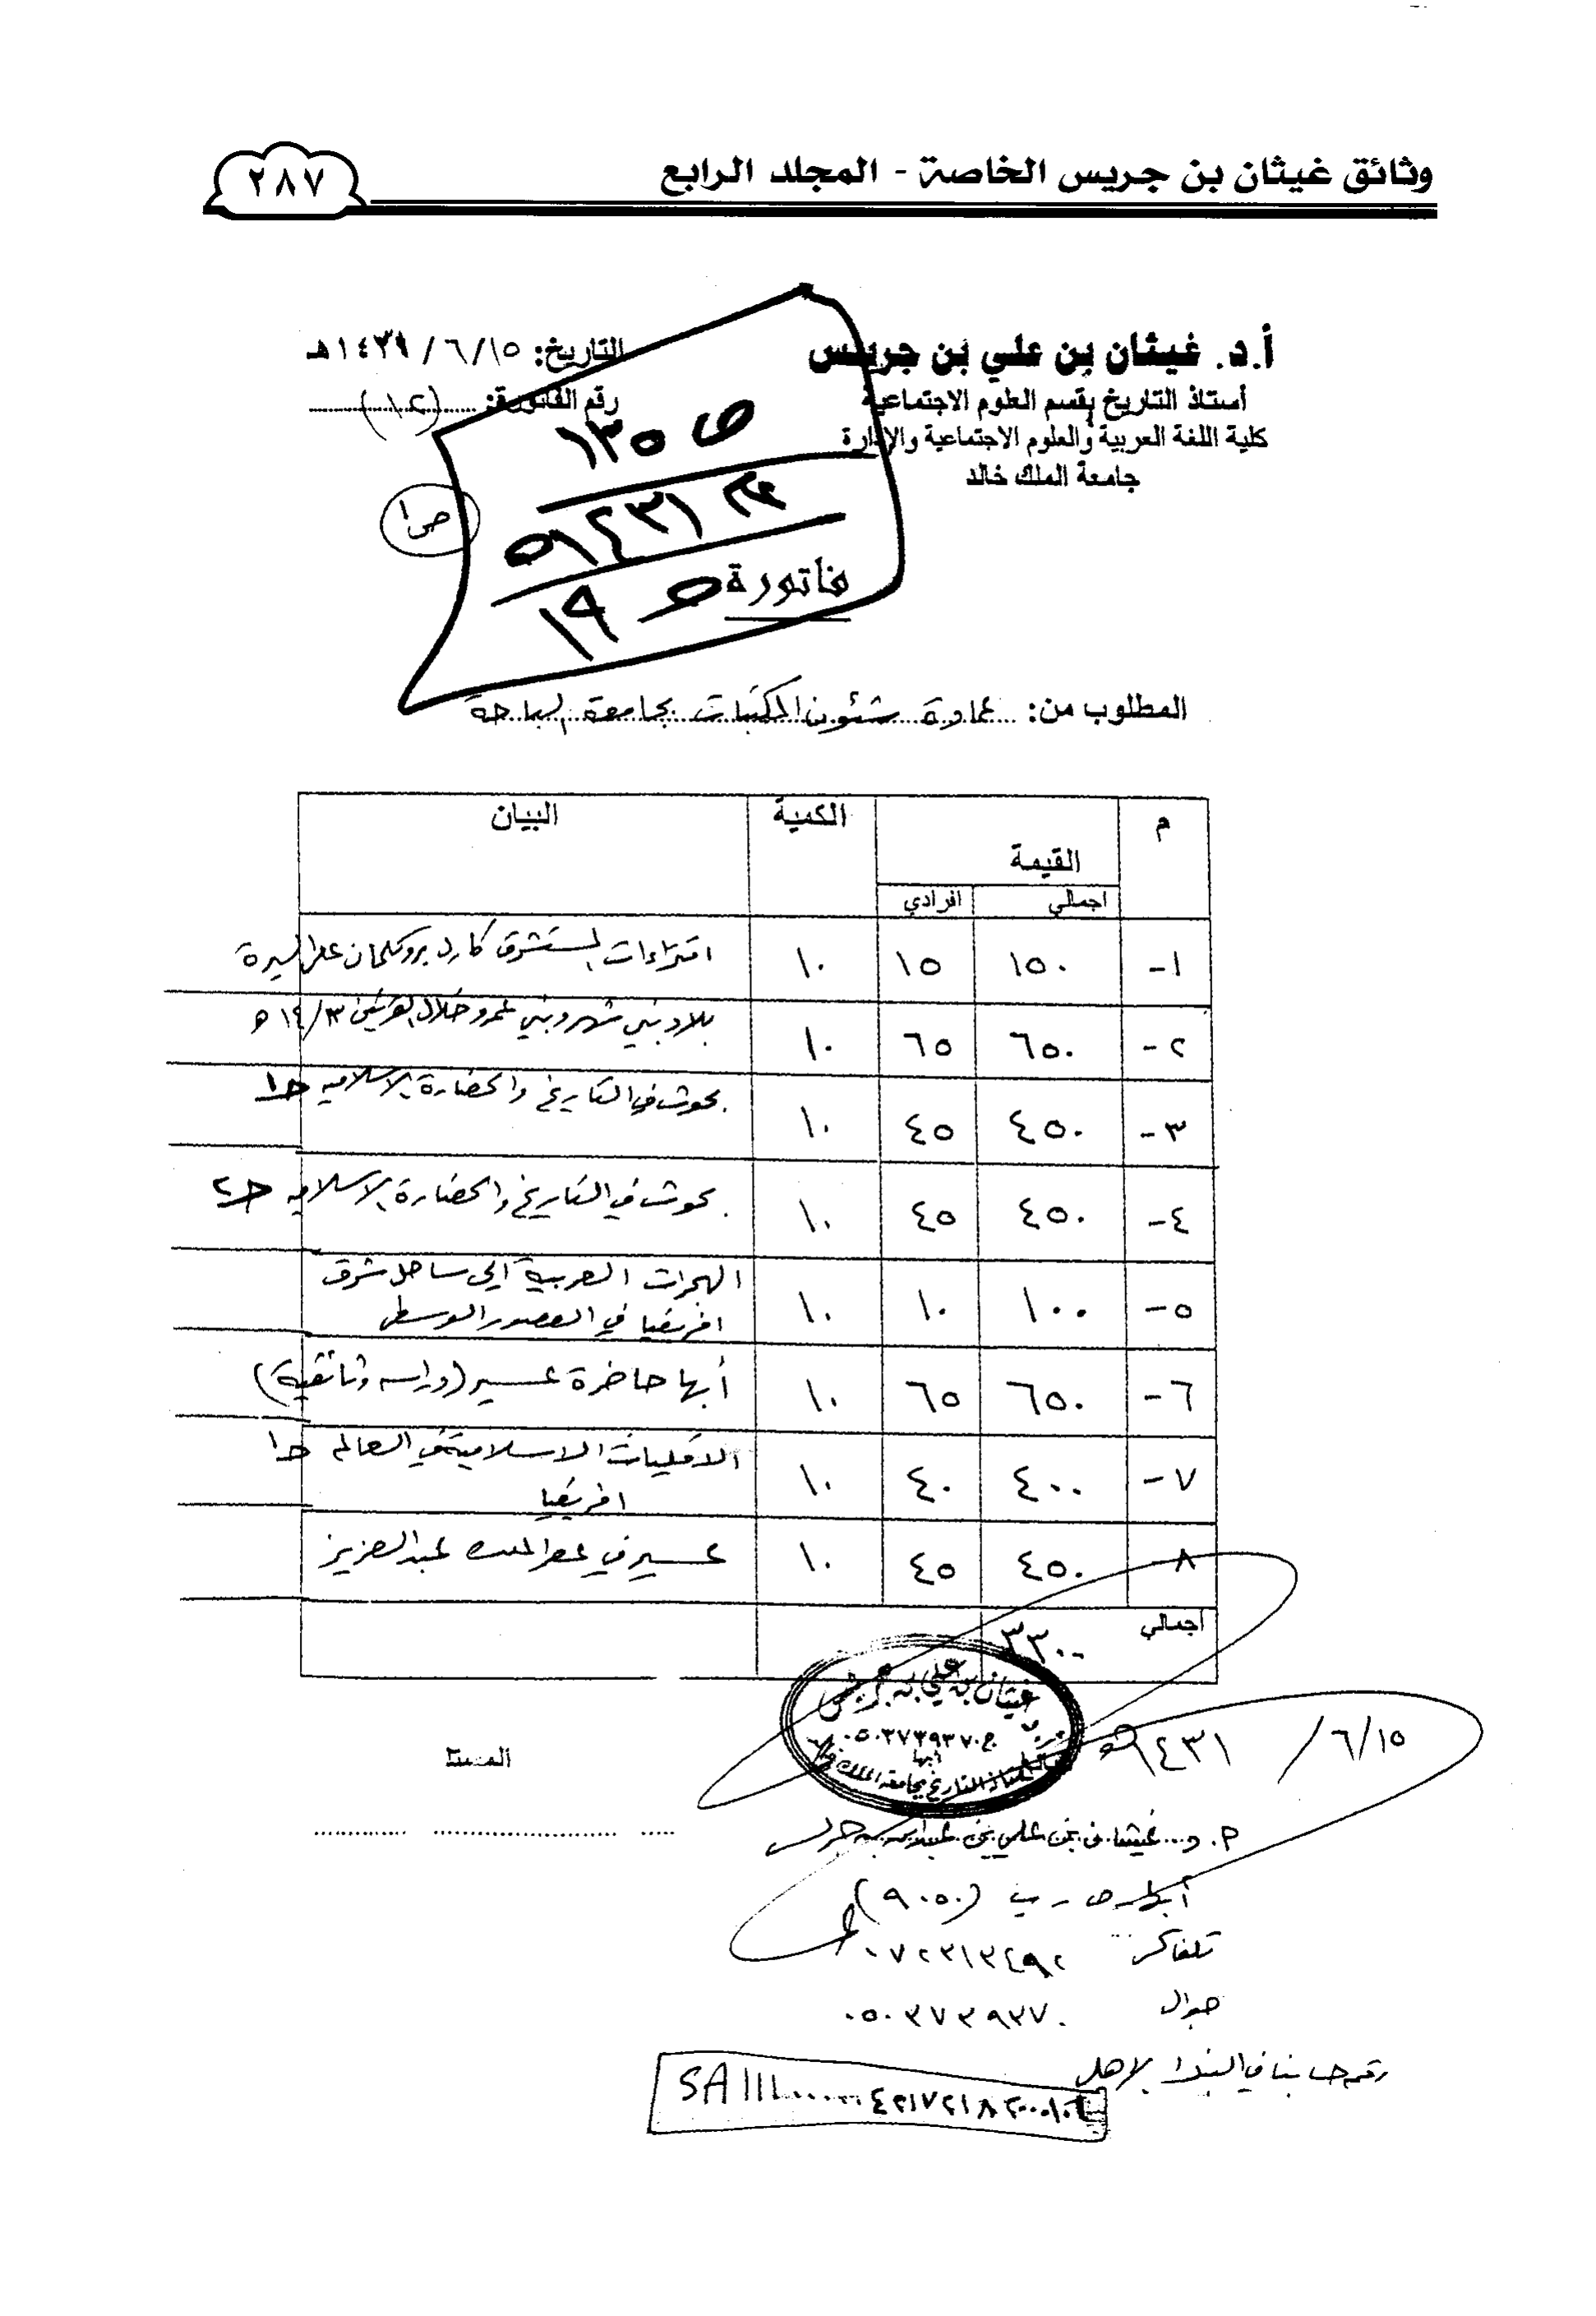 وثائق غيثان بن جريس الخاصة - المجلد الرابع
٢٨٧
أ.د. غيثان بن علي بن جريس
أستاذ التاريخ بقسم العلوم الاجتماعية
كلية اللغة العربية والعلوم الاجتماعية والإدارة
جامعة الملك خالد
التاريخ: ١٥/٦/١٤٣٩هـ
رقم الفاتورة: (١٢)
ص١
ص ١٣٥
١٤٣١هـ
فاتورة
ص ١٩
المطلوب من: عمادة شئون المكتبات بجامعة الباحة
م القيمة الكمية البيان
اجمالي افرادي
١- ١٥٠ ١٥ ١٠ افتراءات المستشرق كارل بروكلمان على السيرة
٢- ٦٥٠ ٦٥ ١٠ بلاد بني شهر وبني عمرو خلال القرنين ١٣/١٤هـ
٣- ٤٥٠ ٤٥ ١٠ بحوث في التاريخ والحضارة الاسلامية ج١
٤- ٤٥٠ ٤٥ ١٠ بحوث في التاريخ والحضارة الاسلامية ج٢
٥- ١٠٠ ١٠ ١٠ الهجرات العربية الى ساحل شرق
افريقيا في العصور الوسطى
٦- ٦٥٠ ٦٥ ١٠ أبها حاضرة عسير (دراسة وثائقية)
٧- ٤٠٠ ٤٠ ١٠ الاقليات الاسلامية في العالم ج١
افريقيا
٨- ٤٥٠ ٤٥ ١٠ عسير في عصر الملك عبدالعزيز
اجمالي ٣٣٠٠
غيثان بن علي بن جريس
ج ٠٥٠٣٧٣٩٣٧٠
أبها
أستاذ التاريخ بجامعة الملك خالد
١٥/٦/ ١٤٣١هـ
أ. د. غيثان بن علي بن عبدالله بن جريس
أبها ص.ب (٩٠٥٠)
تلفاكس ٠٧٢٣١٣٤٩٢
جوال ٠٥٠٣٧٣٩٣٧٠
رقم حسابنا في البنك الاهلي